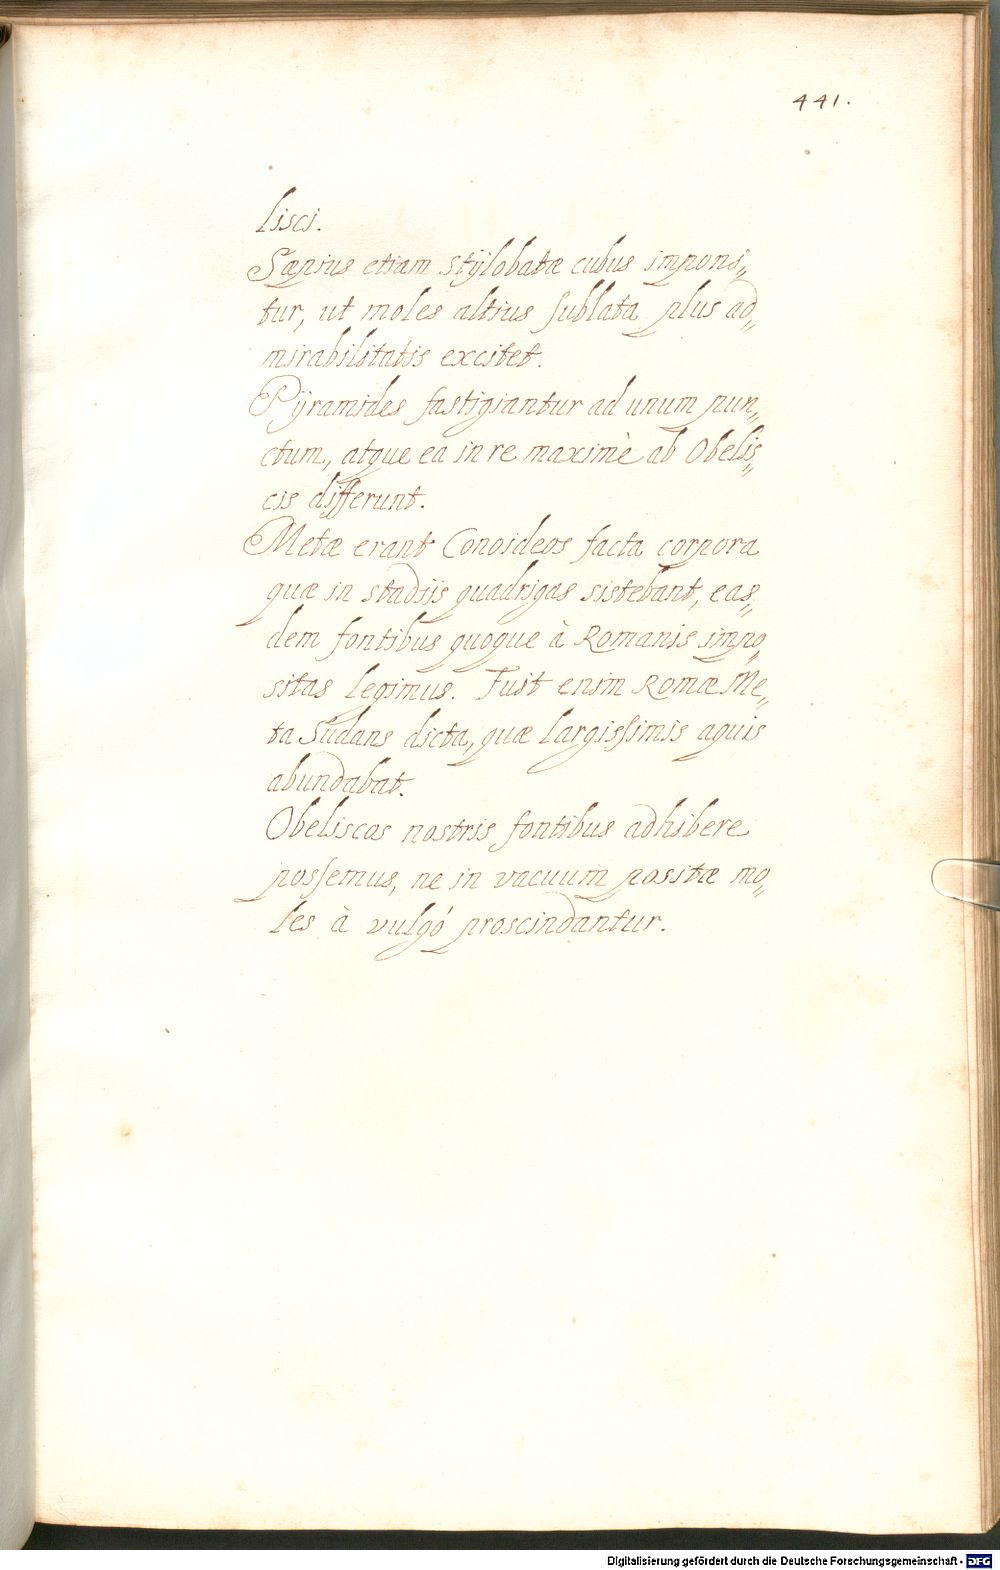 441.
lisci.
Sæpius etiam stÿlobatæ cubus imponi„
tur, ut moles altius sublata plus ad„
mirabilitatis excitet.
Pÿramides fastigiantur ad unum pun„
ctum, atque ea in re maximè ab Obelis„
cis differunt.
Metæ erant Conoideos facta corpora
quæ in stadiis quadrigas sistebant, eas„
dem fontibus quoque à Romanis impo„
sitas legimus. Fuit enim Romæ Me„
ta Sudans dicta, quæ largissimis aquis
abundabat.
Obeliscos nostris fontibus adhibere
possemus, ne in vacuum positæ mo„
les à vulgó proscindantur.
Digitalisierung gefördert durch die Deutsche Forschungsgemeinschaft - DFG